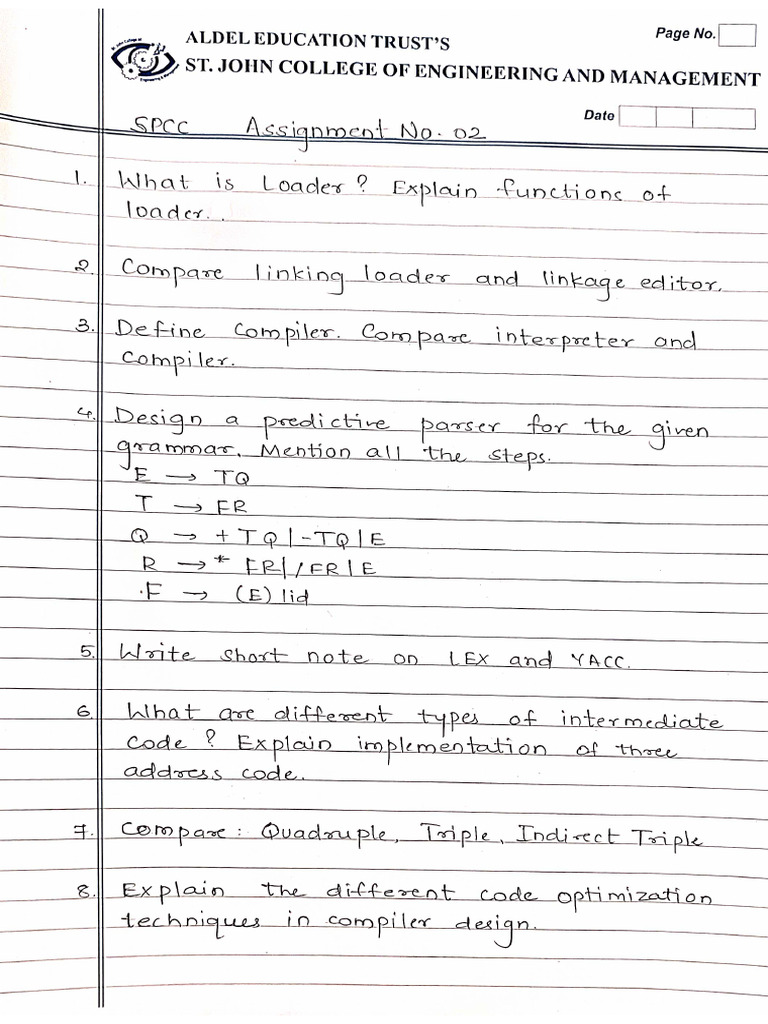 ALDEL EDUCATION TRUST'S
Page No.
ST. JOHN COLLEGE OF ENGINEERING AND MANAGEMENT
Date
SPCC Assignment No. 02
1. What is Loader? Explain functions of
loader..
2. Compare linking loader and linkage editor.
3. Define Compiler. Compare interpreter and
Compiler.
4. Design a predictive parser for the given
grammar. Mention all the steps.
E → TQ
T → FR
Q → + TQ | -TQ | E
R → * FR | / FR | E
F → (E) | id
5. Write short note on LEX and YACC.
6. What are different types of intermediate
code? Explain implementation of three
address code.
7. Compare: Quadruple, Triple, Indirect Triple
8. Explain the different code optimization
techniques in compiler design.